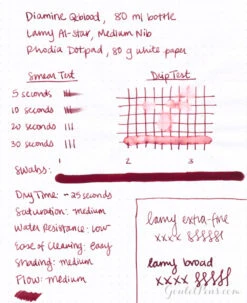 Diamine Oxblood, 80 ml bottle
Lamy Al-Star, Medium Nib
Rhodia Dotpad, 80 g white paper
Smear Test
Drip Test
5 seconds
10 seconds
20 seconds
30 seconds
Swabs:
1
2
3
Dry Time: ~25 seconds
Saturation: medium
Water Resistance: low
Ease of Cleaning: easy
Shading: medium
Flow: medium
lamy extra-fine
xxxx
lamy broad
xxxx
GouletPens.com